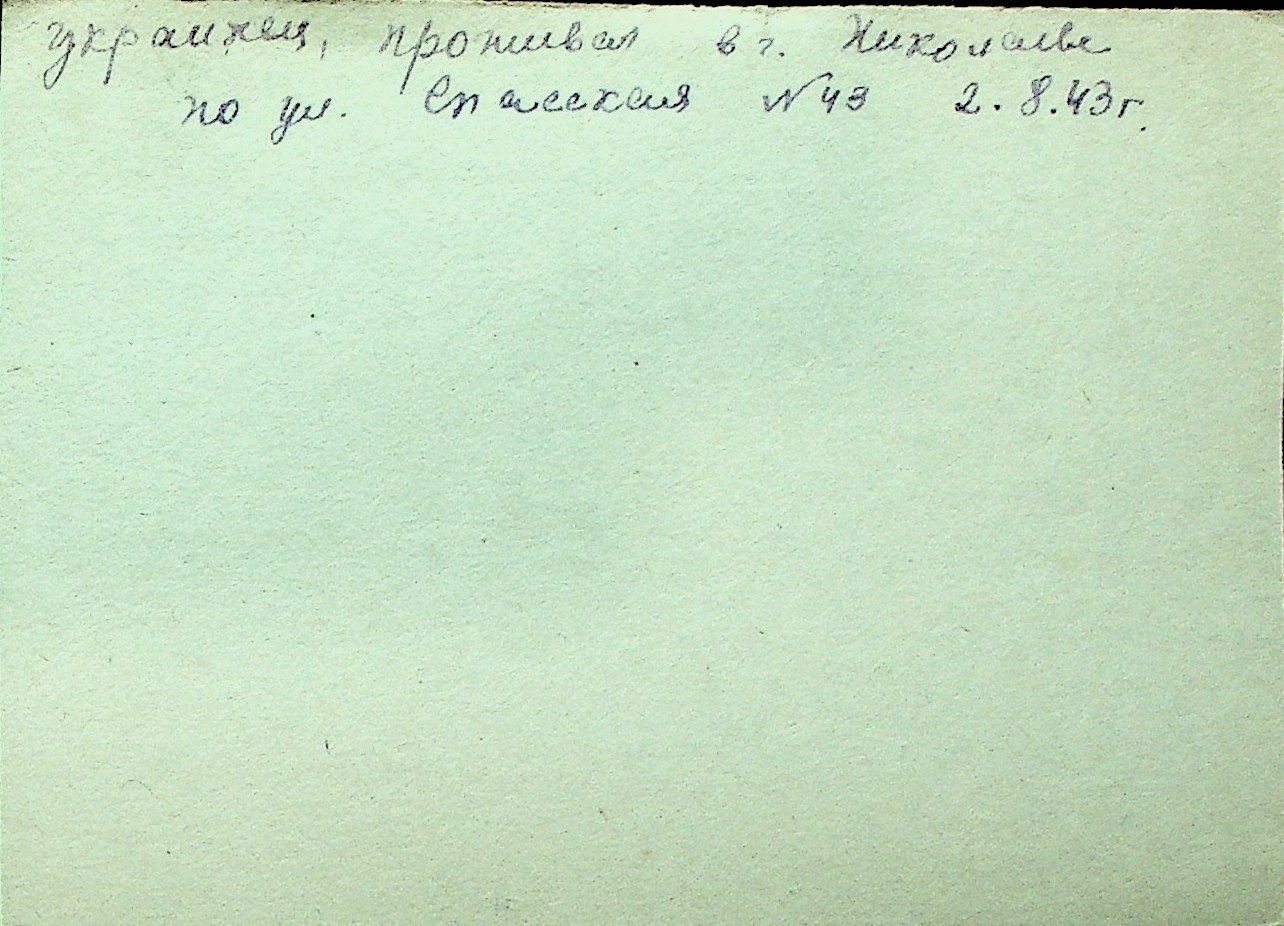 украинец, проживал в г. Николаеве
по ул. Спасская № 43 2.8.43 г.